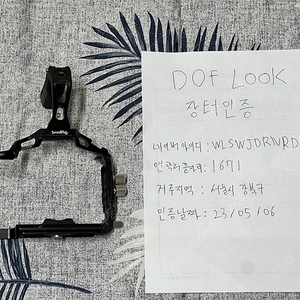 SmallRig
DOF LOOK
장터인증
네이버 아이디 : WLSWJDRNRD
연락처 뒷자리 : 1671
거주지역 : 서울시 강북구
인증날짜 : 23/05/06